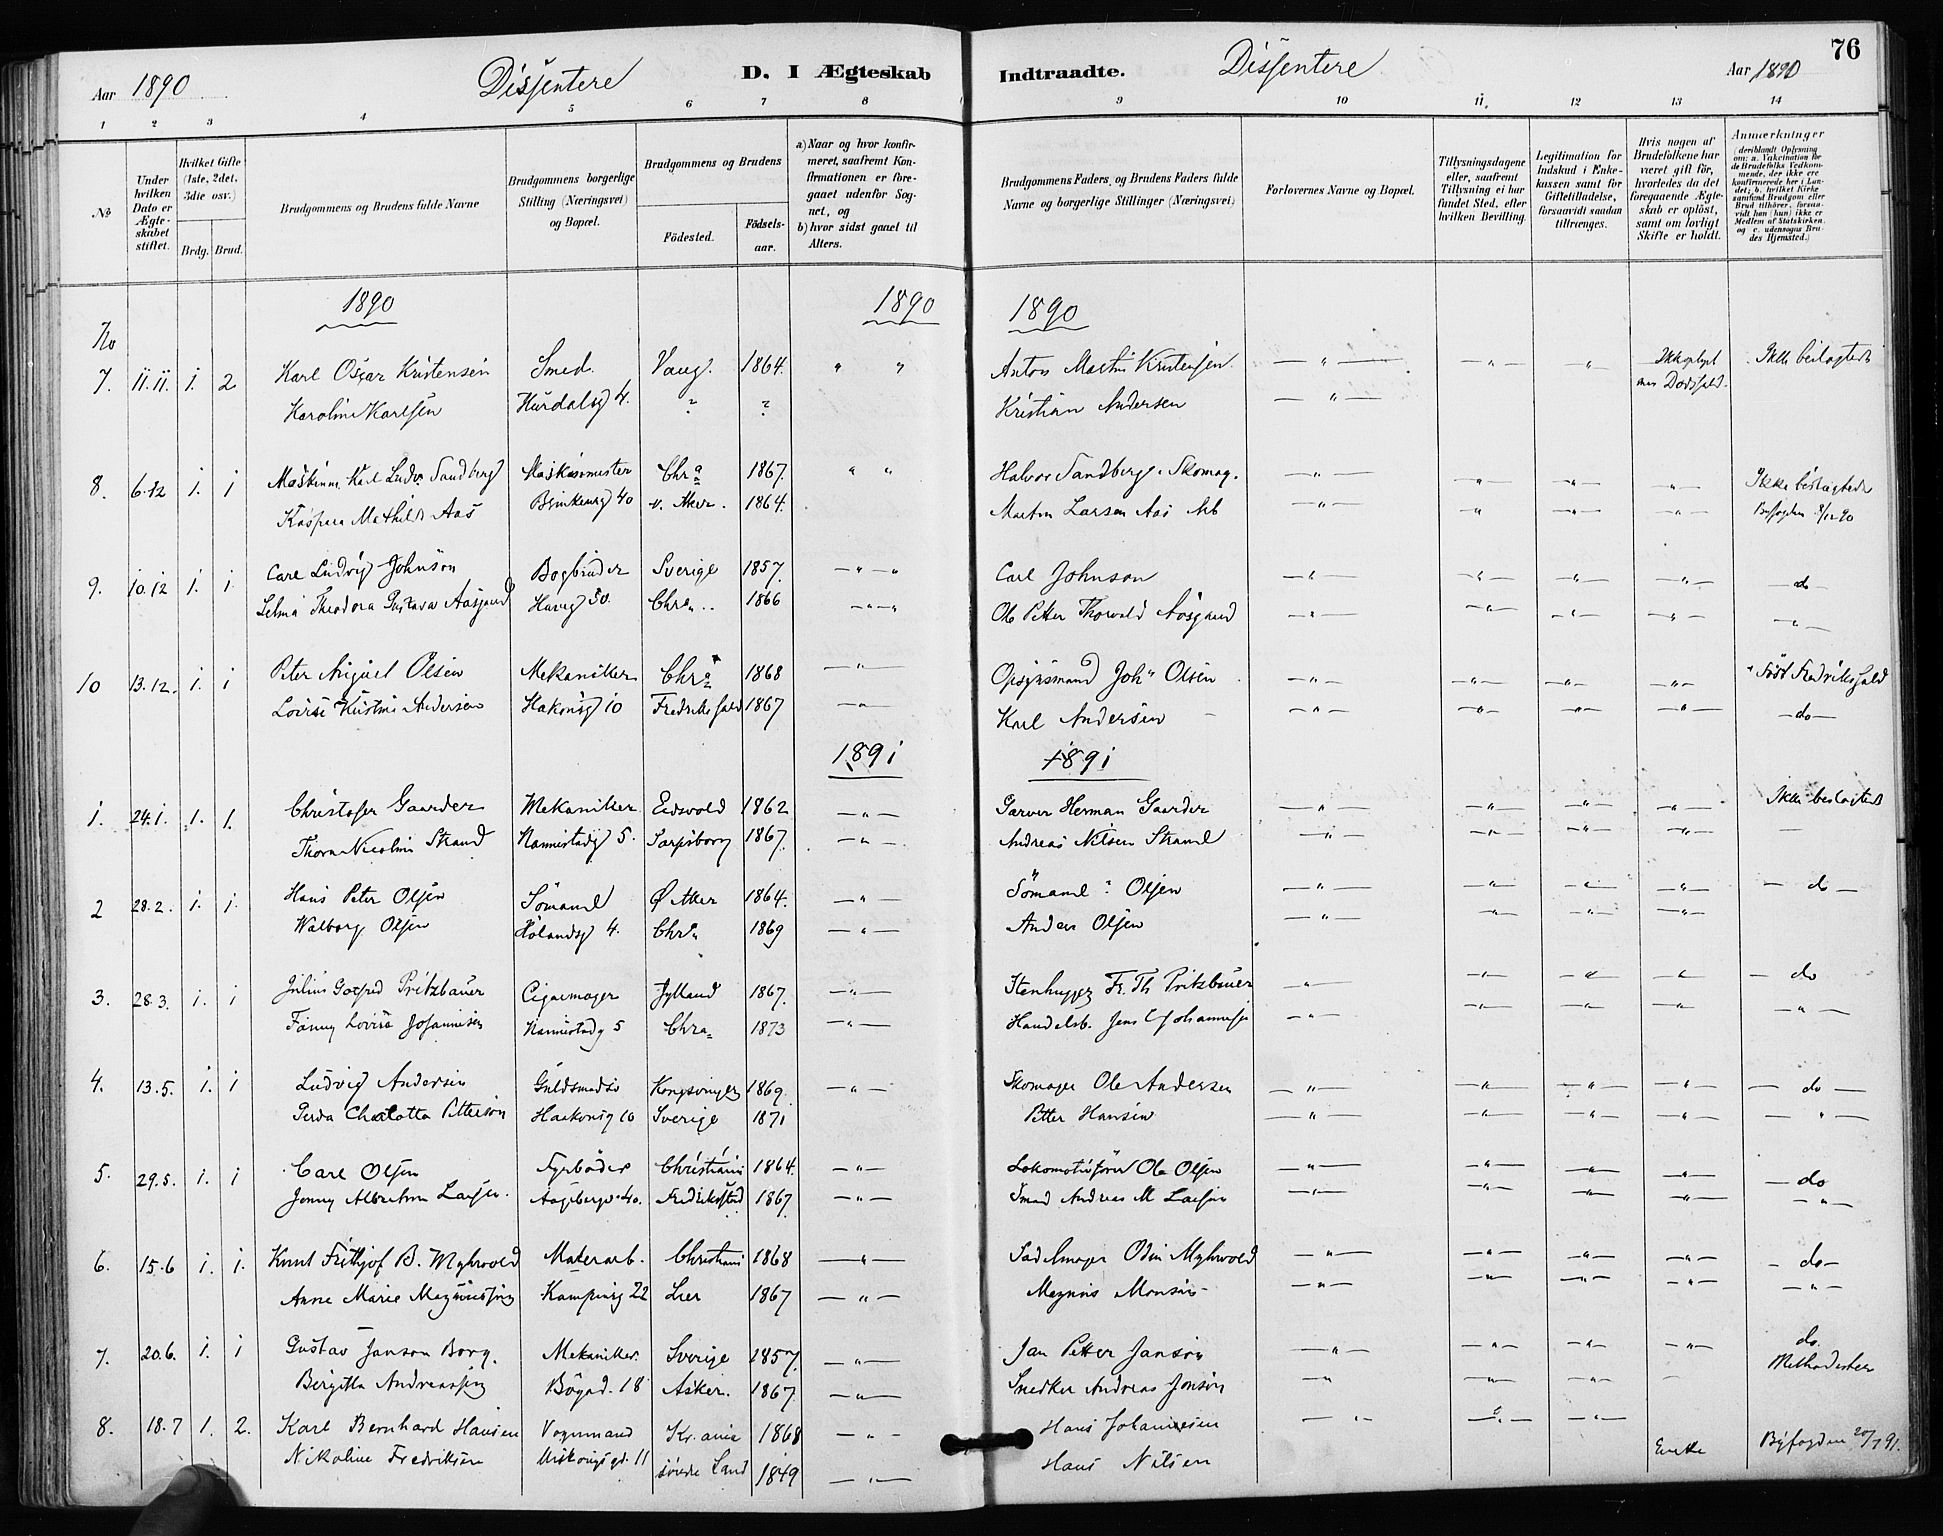 76
Aar 1890 Dissentere D. I Ægteskab Indtraadte. Dissentere Aar 1890
1 2 3 4 5 6 7 8 9 10 11 12 13 14
No
Under hvilken Dato er Ægteskabet stiftet.
Hvilket Gifte (1ste, 2det, 3die osv.)
Brdg. Brud.
Brudgommens og Brudens fulde Navne
Brudgommens borgerlige Stilling (Næringsvei) og Bopæl.
Brudgommens og Brudens
Födested. Födselsaar.
a) Naar og hvor konfirmeret, saafremt Konfirmationen er foregaaet udenfor Sognet, og
b) hvor sidst gaaet til Alters.
Brudgommens Faders, og Brudens Faders fulde Navne og borgerlige Stillinger (Næringsvei)
Forlovernes Navne og Bopæl.
Tillysningsdagene eller, saafremt Tillysning ei har fundet Sted, efter hvilken Bevilling.
Legitimation for Indskud i Enkekassen samt for Giftetilladelse, forsaavidt saadan tiltrænges.
Hvis nogen af Brudefolkene har været gift för, hvorledes da det foregaaende Ægteskab er oplöst, samt om lovligt Skifte er holdt.
Anmærkninger (deriblandt Oplysning om: a. Vakcination för de Brudefolks Vedkommende, der ikke ere konfirmerede her i Landet; b. hvilket Kirke samfund Brudgom eller Brud tilhörer, forsaavidt han (hun) ikke er Medlem af Statskirken, og c. udensogns Brudes Hjemsted.)
1890 1890 1890
No
7. 11.11. 1. 2 Karl Oscar Kristensen Smed. Vang. 1864. " " Anton Martin Kristensen — " — — " — — " — Ikke beslægtede
Karoline Karlsen Hurdalsg 4. ? ? Kristian Andersen — " —
8. 6.12 1. 1 Karl Ludv Sandberg Maskinmester Chra 1867. " " Halvor Sandberg. Skomag. — " — — " — — " — — " — Ikke beslægtede
Kaspara Mathilde Aas 40 v. Aker. 1864. Martin Larsen Aas Arb — " — — " — — " — — " — Byfogden 8/12 90
9. 10.12 1. 1. Carl Ludvig Johnson Bogbinder Sverige 1857. — " — " Carl Johnson — " — — " — — " — — " — — do —
Selma Theodora Gustava Aasgaard Haveg 50. Chra 1866 — " — " Ole Petter Thorvald Aasgaard — " — — " — — " — — " — — " —
10 13.12. 1. 1 Peter August Olsen Mekaniker Chra 1868 — " — Opsynsmand Joh" Olsen — " — — " — — " — — " — Fredrikshald
Lovise Kristine Andersen Hakonsg 10 Fredrikshald 1867 — " — Karl Andersen — " — — " — — " — — " — — do —
1891 1891
1. 24.1. 1. 1. Christofer Gaarder Mekaniker Eidsvold 1862 — " — Garver Herman Gaarder — " — — " — — " — — " — Ikke beslægtede
Thora Nicoline Strand Kannistadg 5. Sarpsborg 1867. — " — Andreas Nilsen Strand — " — — " — — " — — " — —
2 28.2. 1. 1. Hans Peter Olsen Sömand 1864. — " — Sömand ? Olsen — " — — " — — " — — " — — do —
Walborg Olsen Hölandsg 4. Chra 1869 — " — Anders Olsen — " — — " — — " — — " —
3. 28.3. 1. 1 Julius Gotfred Pritzbauer Cigarmager Jylland 1867. — " — Stenhugger Fr. Th Pritzbauer — " — — " — — " — — " — — do
Fanny Lovise Johannesen Kannistadg 5 Chra 1873 — " — Handelsb. Jens Johannesen — " — — " — — " — — " — — " —
4. 13.5. 1. 1 Ludvig Andersen Guldsmedsv Kongsvinger 1869. — " — Skomager Ole Andersen — " — — " — — " — — " — — do —
Gerda Charlotta Petterson Haakonsg 10 Sverige 1871 Petter Hansen — " — — " — — " — — " — — " —
5. 29.5. 1. 1 Carl Olsen Fyrböder Christiania 1864. — " — Lokomotivförer Ole Olsen — " — — " — — " — — " — — do
Jenny Albertine Larsen. Aagebergv. 40. Fredrikstad 1867. — " — Smed Andreas M Larsen — " — — " — — " — — " — — " —
6. 15.6 1. 1. Knut Frithjof B. Myhrvold Malerarb. Christiania 1868 — " — Sadelmager Odin Myhrvold — " — — " — — " — — " — — do —
Anne Marie Magnussen Kampensg 22 Lier 1867 — " — Magnus Monsen — " — — " — — " — — " — — " —
7. 20.6. 1. 1 Gustav Janson Borg. Mekaniker. Sverige 1857. — " — Jan Petter Janson — " — — " — — " — — " — do.
Bergitta Andreassen Bögad. 18 Asker. 1867. — " — Snedker Andreas Jonsen — " — " — — " — — Methodisten
8. 18.7 1. 2. Karl Bernhard Hansen Vognmand Kr.ania 1868 — " — Hans Johannesen — " — — " — — " —
Nikoline Fredriksen 11 söndre Land 1849 — " — Hans Nilsen Enke Byfogden 20/7 91.